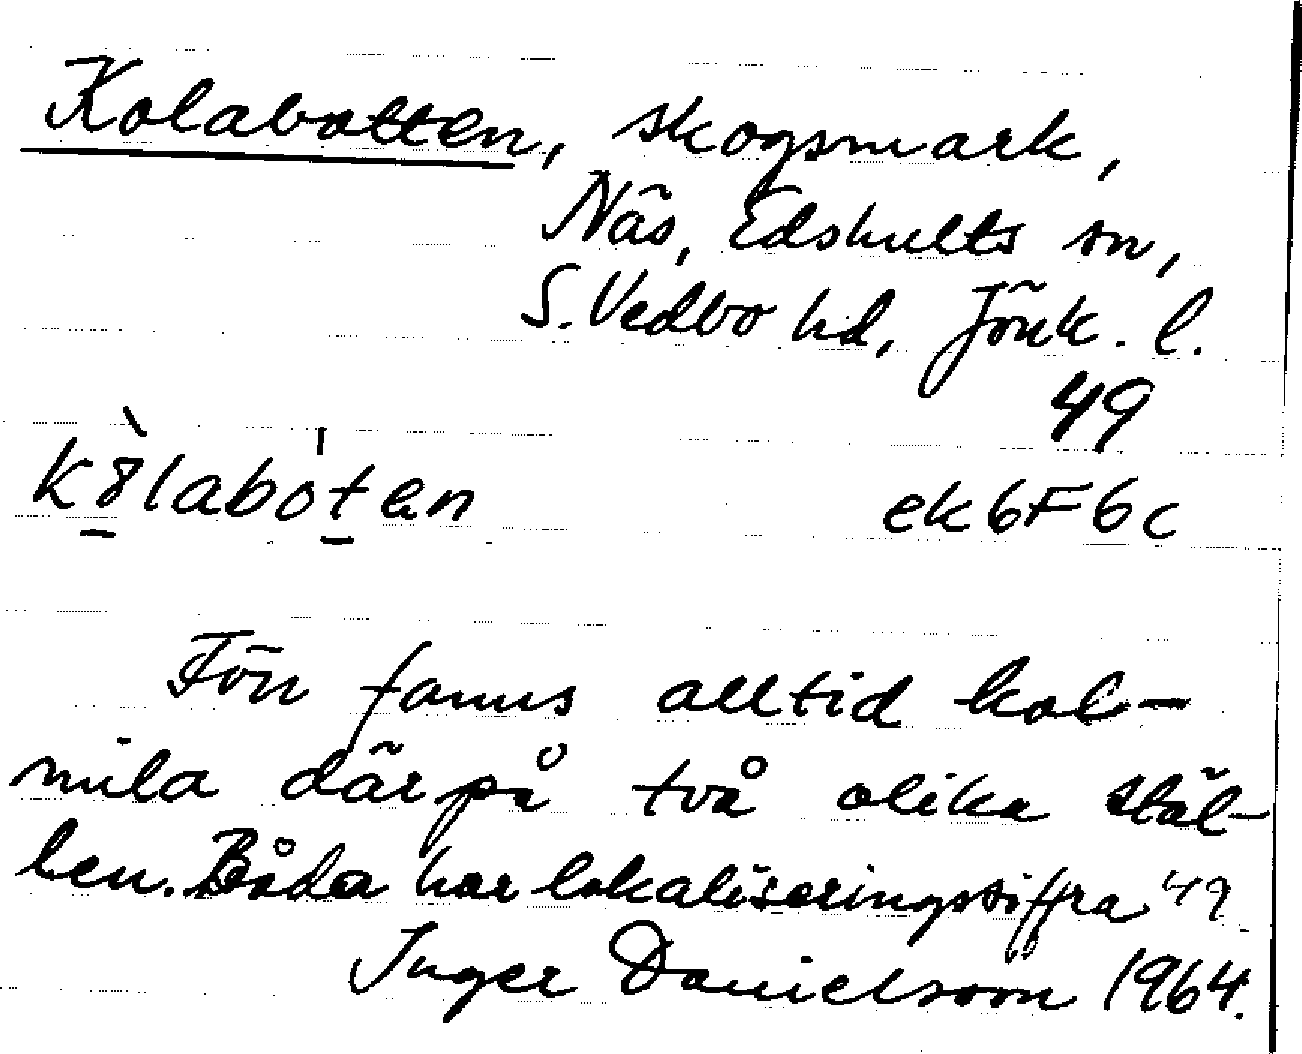 Kolabotten, skogsmark,
Näs, Edshults sn,
S. Vedbo hd, Jönk. l.
49
k8̀labòten
ek6F6c
Förr fanns alltid kol-
mila där på två olika stäl-
len. Båda har lokaliseringssiffra 49
Inger Danielsson 1964.